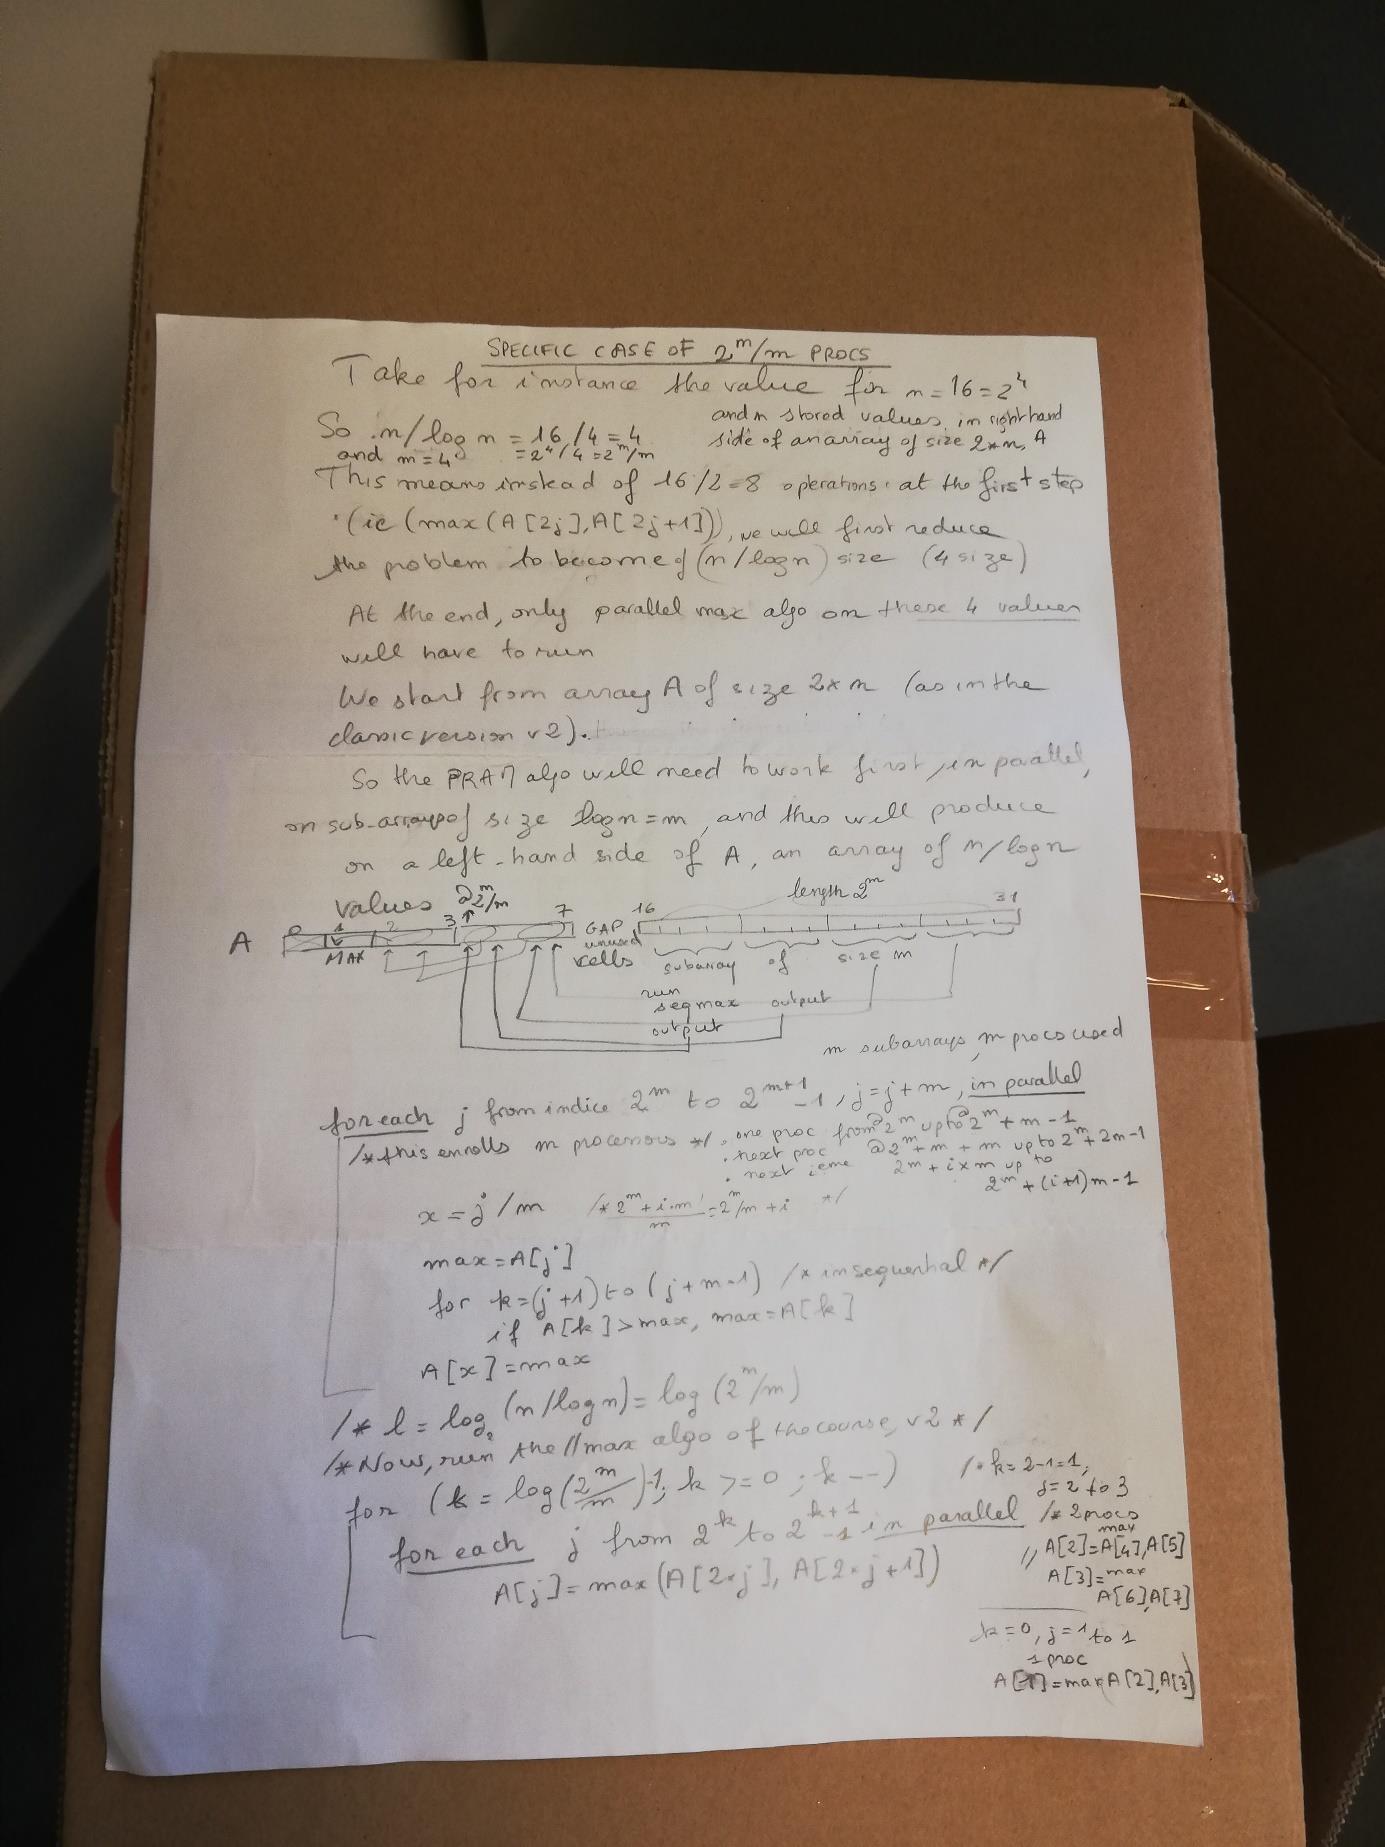 SPECIFIC CASE OF 2^m/m PROCS
Take for instance the value for n = 16 = 2^4
and n stored values, in right hand
side of an array of size 2*n, A
So n/log n = 16/4 = 4
and m = 4 = 2^4/4 = 2^m/m
This means instead of 16/2 = 8 operations at the first step
(ie (max(A[2j],A[2j+1])), we will first reduce
the problem to become of (n/logn) size (4 size)
At the end, only parallel max algo on these 4 values
will have to run
We start from array A of size 2*n (as in the
classic version v2).
So the PRAM algo will need to work first, in parallel,
on sub-arrays of size logn = m, and this will produce
on a left-hand side of A, an array of n/logn
values @2^m/m
length 2^m
A 0 1 2 3 7 16 31
MAX
GAP
unused
cells
subarray of size m
run
seqmax output
output
m subarrays, m procs used
for each j from indice 2^m to 2^m+1 -1, j=j+m, in parallel
/* this enrolls m processors */ . one proc from @2^m up to @2^m + m - 1
. next proc @2^m + m + m up to 2^m + 2m - 1
. next ieme 2^m + i x m up to
2^m + (i+1)m - 1
x = j/m /* 2^m + i.m / m = 2^m/m + i */
max = A[j]
for k = (j+1) to (j+m-1) /* in sequential */
if A[k] > max, max = A[k]
A[x] = max
/* l = log2 (n/logn) = log (2^m/m)
/* Now, run the //max algo of the course, v2 */
for (k = log(2^m/m)-1; k >= 0; k--)
for each j from 2^k to 2^k+1 -1 in parallel
A[j] = max(A[2*j], A[2*j+1])
/* k = 2-1 = 1,
j = 2 to 3
/* 2 procs
// A[2] = max A[4],A[5]
A[3] = max
A[6],A[7]
k = 0, j = 1 to 1
1 proc
A[1] = max A[2],A[3]